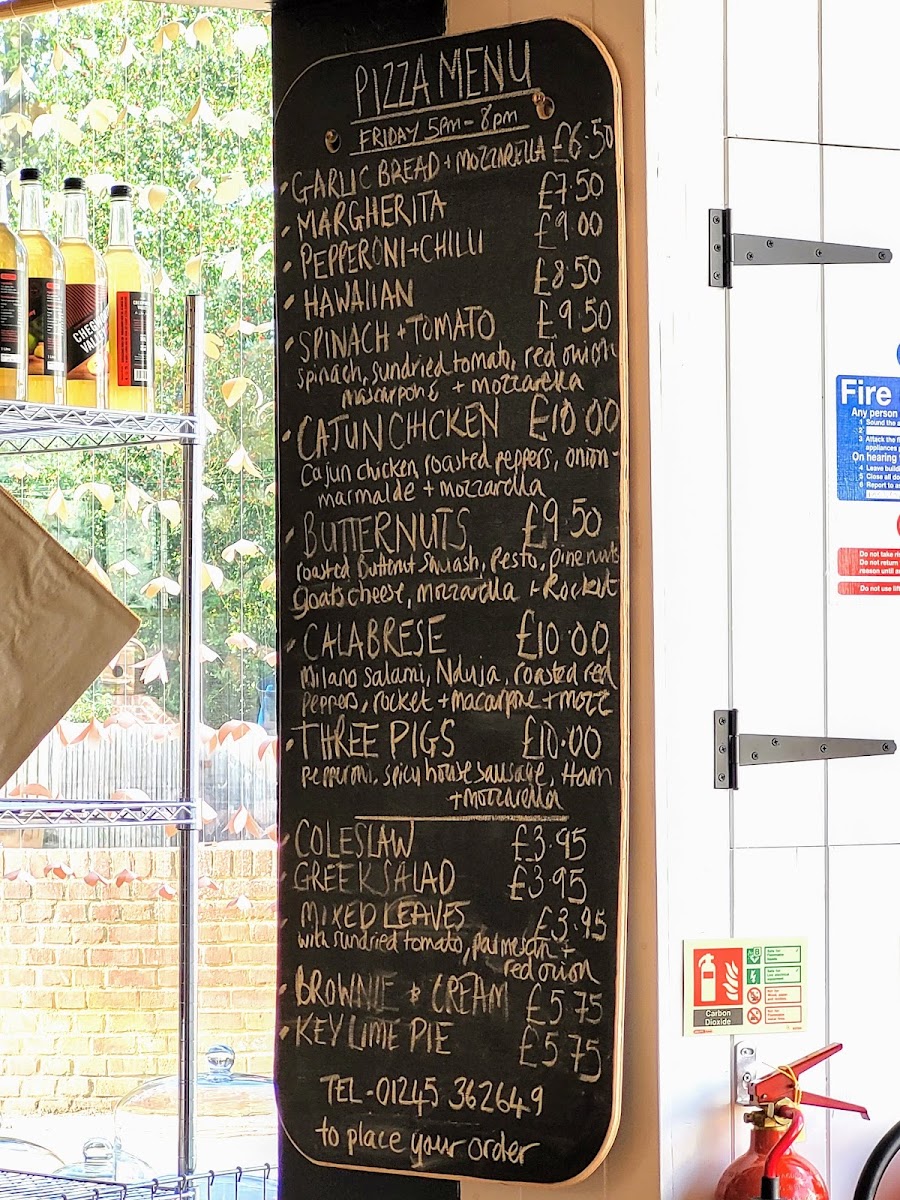 PIZZA MENU
FRIDAY 5PM - 8PM
• GARLIC BREAD + MOZZARELLA £6.50
• MARGHERITA £7.50
• PEPPERONI + CHILLI £9.00
• HAWAIIAN £8.50
• SPINACH + TOMATO £9.50
spinach, sundried tomato, red onion
mascarpone + mozzarella
• CAJUN CHICKEN £10.00
Cajun chicken, roasted peppers, onion-
marmalde + mozzarella
• BUTTERNUTS £9.50
roasted Butternut Squash, Pesto, pinenuts
Goats cheese, mozzarella + Rocket
• CALABRESE £10.00
Milano Salami, Nduja, roasted red
Peppers, rocket + macarpne + mozz
• THREE PIGS £10.00
Pepperoni, spicy house sausage, Ham
+ mozzarella
COLESLAW £3.95
• GREEK SALAD £3.95
• MIXED LEAVES £3.95
with sundried tomato, parmesan +
red onion
• BROWNIE & CREAM £5.75
• KEY LIME PIE £5.75
TEL - 01245 362649
to place your order
Fire
Any person
1 Sound the a
2
3 Attack the f
appliances
On hearing
4 Leave build
5 Close all do
6 Report to a
Do not take ri
Do not return
reason until a
Do not use lift
Carbon
Dioxide